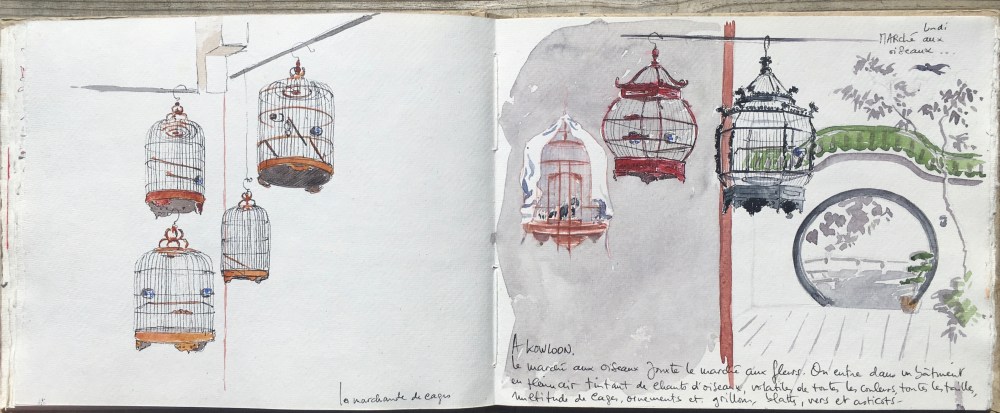 la marchande de cages
lundi
MARché aux
oiseaux...
A KOWLOON.
le marché aux oiseaux jouxte le marché aux fleurs. On entre dans un bâtiment
en plein air tintant de chants d'oiseaux, volatiles de toutes les couleurs, toutes les tailles,
multitude de cages, ornements et grillons, blattes, vers et asticots-